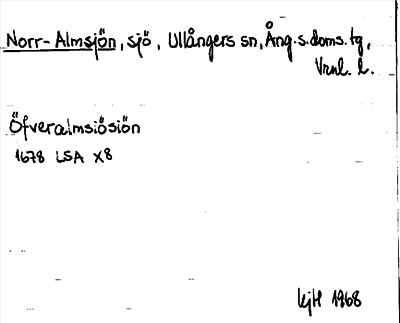 Norr-Almsjön, sjö, Ullångers sn, Ång.s.doms.tg,
Vrnl. l.
Öfveralmsiösiön
1678 LSA X8
kjH 1968